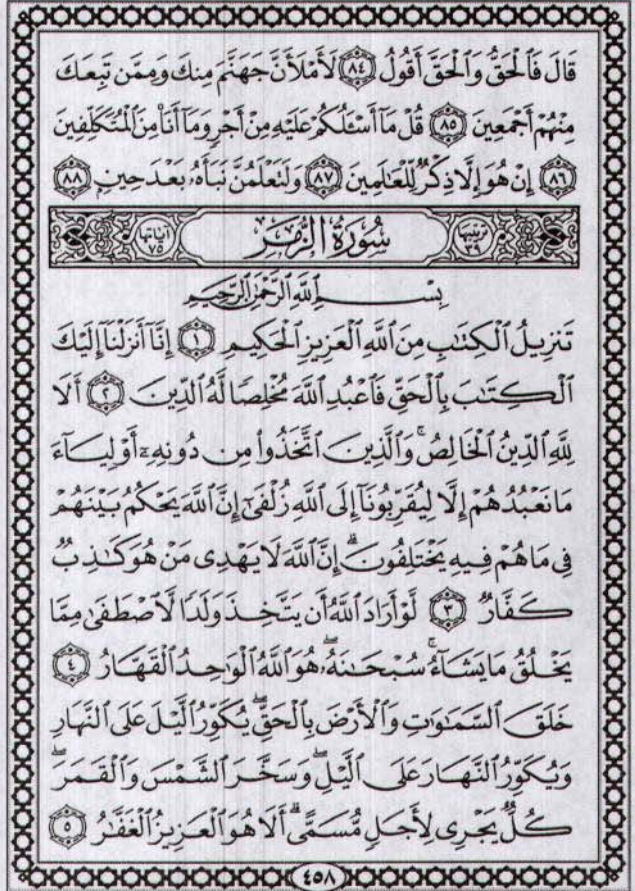 قَالَ فَٱلْحَقُّ وَٱلْحَقَّ أَقُولُ ٨٤ لَأَمْلَأَنَّ جَهَنَّمَ مِنكَ وَمِمَّن تَبِعَكَ
مِنْهُمْ أَجْمَعِينَ ٨٥ قُلْ مَآ أَسْـَٔلُكُمْ عَلَيْهِ مِنْ أَجْرٍ وَمَآ أَنَا۠ مِنَ ٱلْمُتَكَلِّفِينَ
٨٦ إِنْ هُوَ إِلَّا ذِكْرٌ لِّلْعَٰلَمِينَ ٨٧ وَلَتَعْلَمُنَّ نَبَأَهُۥ بَعْدَ حِينٍ ٨٨
ترتيبها ٣٩ سُورَةُ الزُّمَرِ آياتها ٧٥
بِسْمِ ٱللَّهِ ٱلرَّحْمَٰنِ ٱلرَّحِيمِ
تَنزِيلُ ٱلْكِتَٰبِ مِنَ ٱللَّهِ ٱلْعَزِيزِ ٱلْحَكِيمِ ١ إِنَّآ أَنزَلْنَآ إِلَيْكَ
ٱلْكِتَٰبَ بِٱلْحَقِّ فَٱعْبُدِ ٱللَّهَ مُخْلِصًا لَّهُ ٱلدِّينَ ٢ أَلَا
لِلَّهِ ٱلدِّينُ ٱلْخَالِصُ ۚ وَٱلَّذِينَ ٱتَّخَذُوا۟ مِن دُونِهِۦٓ أَوْلِيَآءَ
مَا نَعْبُدُهُمْ إِلَّا لِيُقَرِّبُونَآ إِلَى ٱللَّهِ زُلْفَىٰٓ إِنَّ ٱللَّهَ يَحْكُمُ بَيْنَهُمْ
فِى مَا هُمْ فِيهِ يَخْتَلِفُونَ ۗ إِنَّ ٱللَّهَ لَا يَهْدِى مَنْ هُوَ كَٰذِبٌ
كَفَّارٌ ٣ لَّوْ أَرَادَ ٱللَّهُ أَن يَتَّخِذَ وَلَدًا لَّٱصْطَفَىٰ مِمَّا
يَخْلُقُ مَا يَشَآءُ ۚ سُبْحَٰنَهُۥ ۖ هُوَ ٱللَّهُ ٱلْوَٰحِدُ ٱلْقَهَّارُ ٤
خَلَقَ ٱلسَّمَٰوَٰتِ وَٱلْأَرْضَ بِٱلْحَقِّ ۖ يُكَوِّرُ ٱلَّيْلَ عَلَى ٱلنَّهَارِ
وَيُكَوِّرُ ٱلنَّهَارَ عَلَى ٱلَّيْلِ ۖ وَسَخَّرَ ٱلشَّمْسَ وَٱلْقَمَرَ ۖ
كُلٌّ يَجْرِى لِأَجَلٍ مُّسَمًّى ۗ أَلَا هُوَ ٱلْعَزِيزُ ٱلْغَفَّٰرُ ٥
٤٥٨